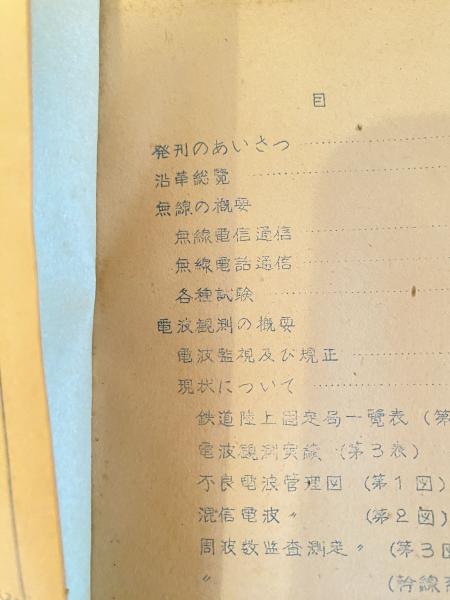 目
発刊のあいさつ
沿革総覧
無線の概要
無線電信通信
無線電話通信
各種試験
電波観測の概要
電波監視及び規正
現状について
鉄道陸上固定局一覧表 (第
電波観測実績 (第3表)
不良電波管理図 (第1図)
混信電波 〃 (第2図)
周波数監査測定 〃 (第3図
〃 (幹線系